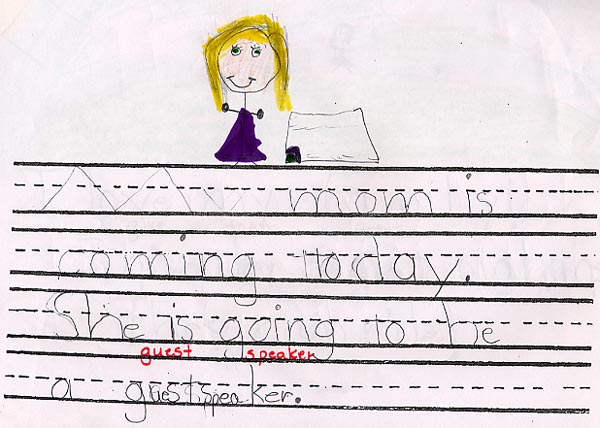 My mom is
coming today.
She is going to be
guest speaker
a guest speaker.